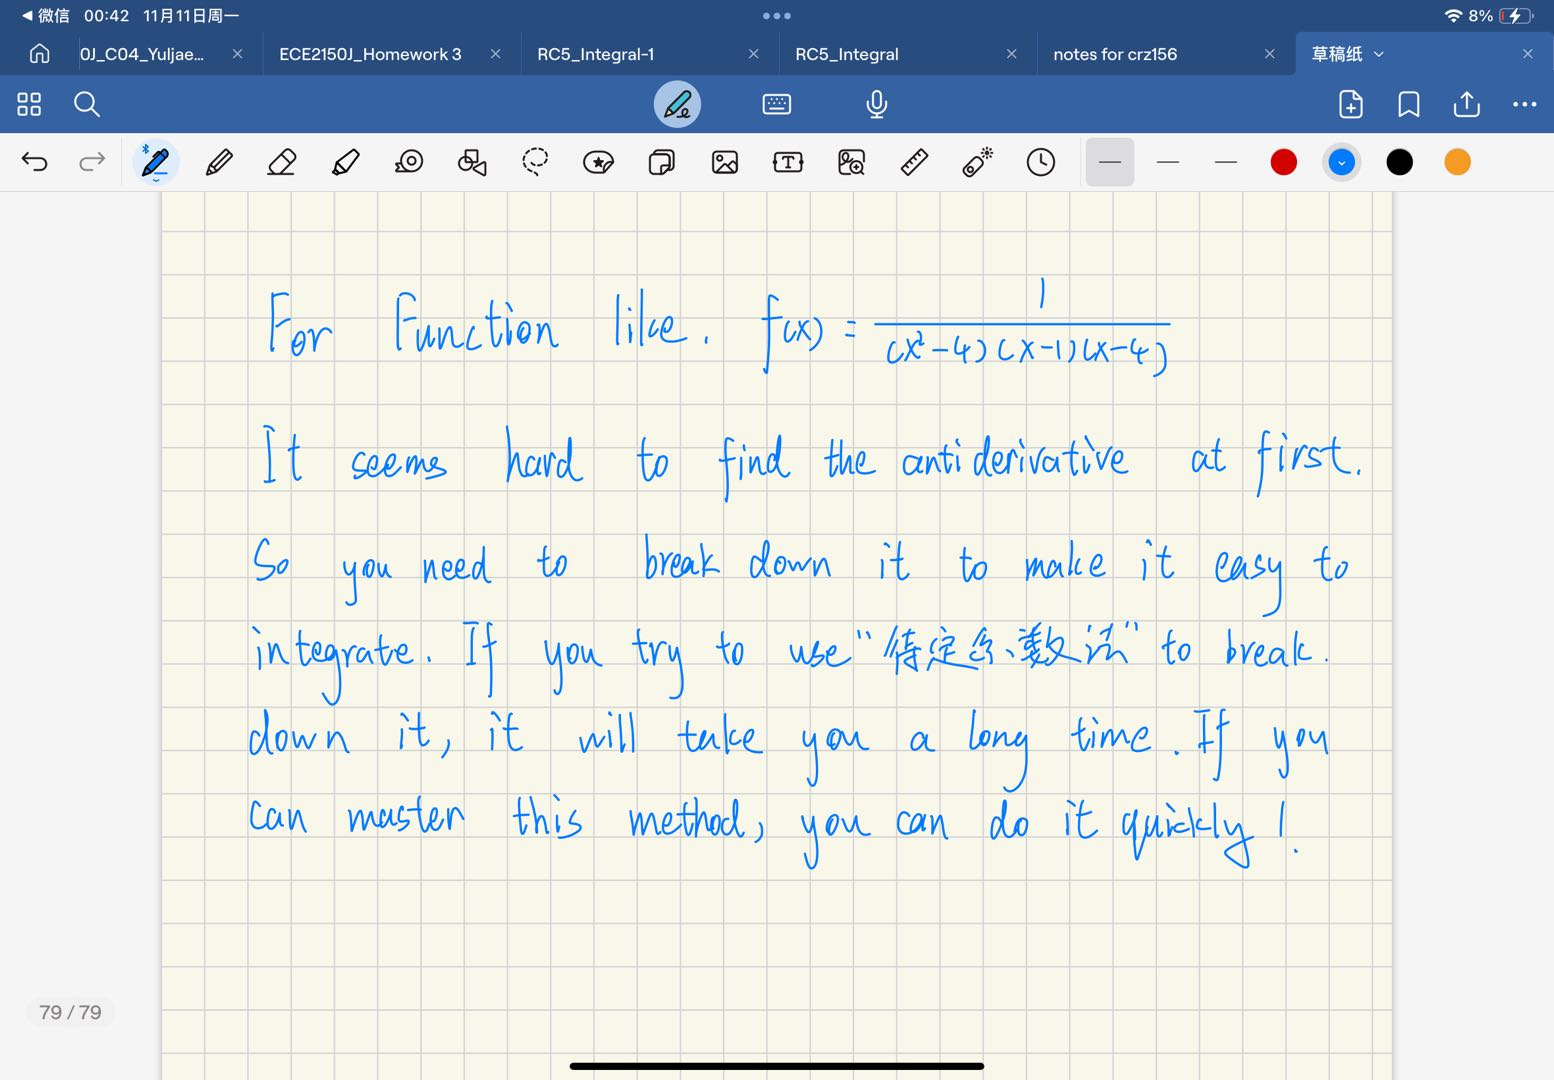 微信 00:42 11月11日周一 8%
0J_C04_Yuljae... ECE2150J_Homework 3 RC5_Integral-1 RC5_Integral notes for crz156 草稿纸
For Function like. f(x) = 1/((x²-4)(x-1)(x-4))
It seems hard to find the antiderivative at first.
So you need to break down it to make it easy to
integrate. If you try to use "待定系数法" to break.
down it, it will take you a long time. If you
can master this method, you can do it quickly!
79 / 79